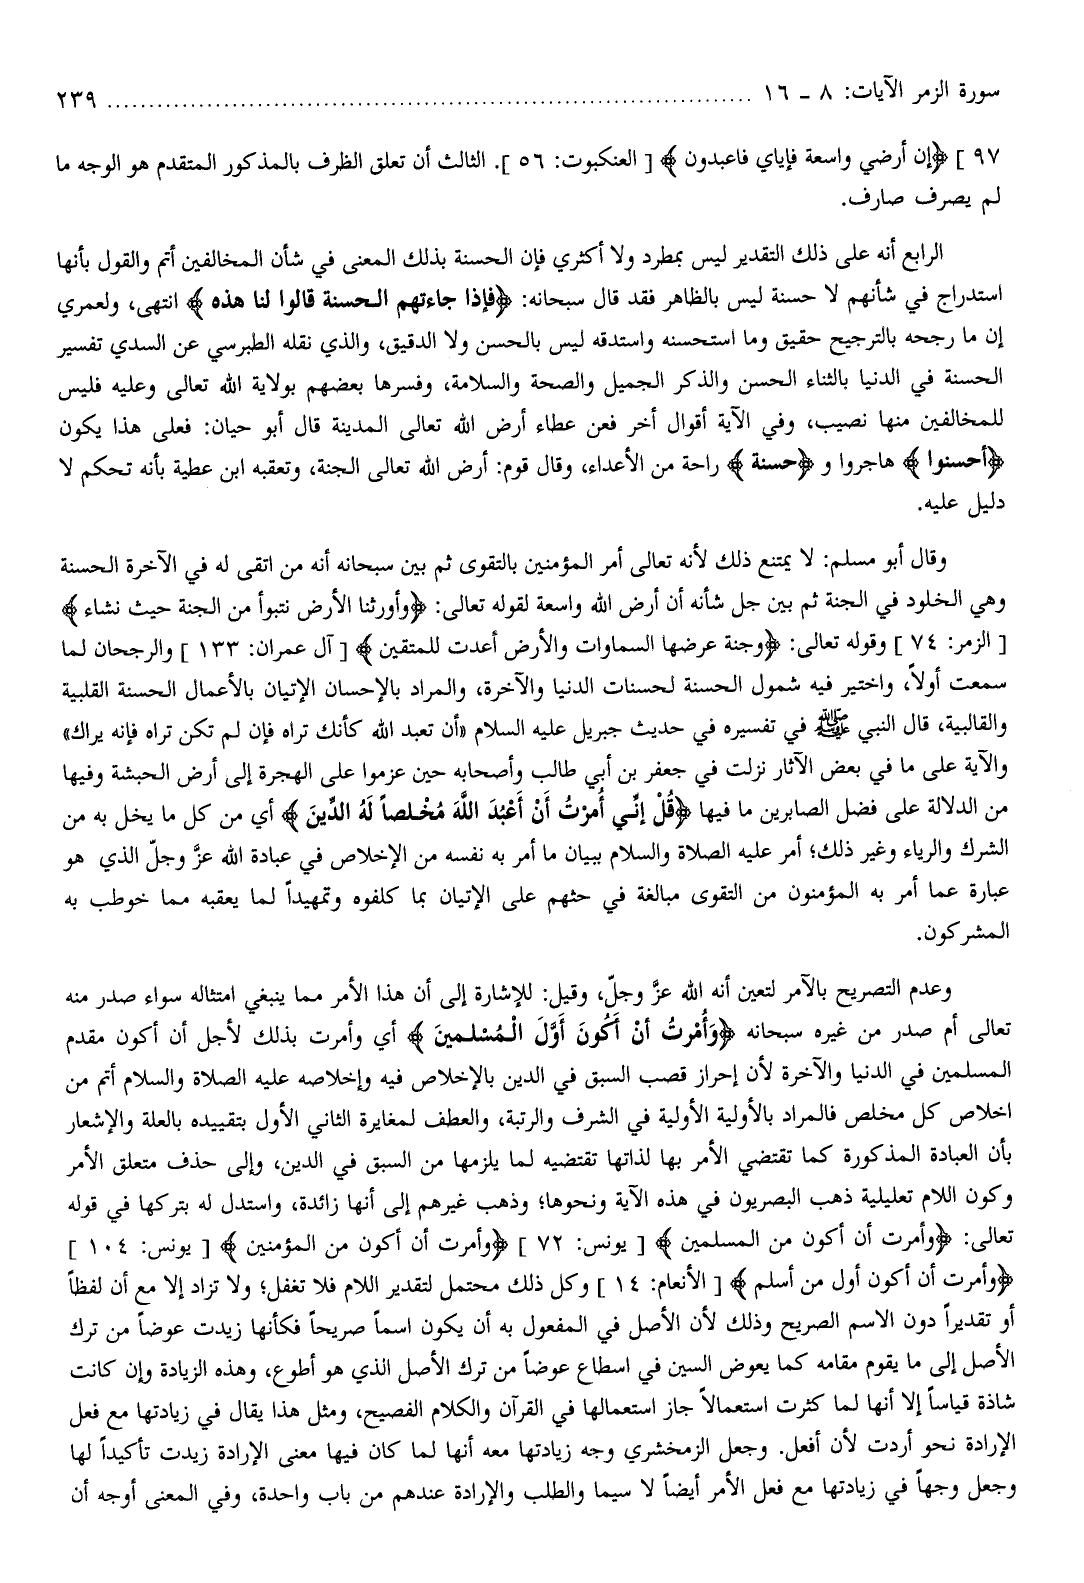 سورة الزمر الآيات: ٨ ـ ١٦ ........................................................................ ٢٣٩
٩٧ ] ﴿إن أرضي واسعة فإياي فاعبدون ﴾ [ العنكبوت: ٥٦ ]. الثالث أن تعلق الظرف بالمذكور المتقدم هو الوجه ما
لم يصرف صارف.
الرابع أنه على ذلك التقدير ليس بمطرد ولا أكثري فإن الحسنة بذلك المعنى في شأن المخالفين أتم والقول بأنها
استدراج في شأنهم لا حسنة ليس بالظاهر فقد قال سبحانه: ﴿فإذا جاءتهم الحسنة قالوا لنا هذه ﴾ انتهى، ولعمري
إن ما رجحه بالترجيح حقيق وما استحسنه واستدقه ليس بالحسن ولا الدقيق، والذي نقله الطبرسي عن السدي تفسير
الحسنة في الدنيا بالثناء الحسن والذكر الجميل والصحة والسلامة، وفسرها بعضهم بولاية الله تعالى وعليه فليس
للمخالفين منها نصيب، وفي الآية أقوال أخر فعن عطاء أرض الله تعالى المدينة قال أبو حيان: فعلى هذا يكون
﴿أحسنوا ﴾ هاجروا و ﴿حسنة ﴾ راحة من الأعداء، وقال قوم: أرض الله تعالى الجنة، وتعقبه ابن عطية بأنه تحكم لا
دليل عليه.
وقال أبو مسلم: لا يمتنع ذلك لأنه تعالى أمر المؤمنين بالتقوى ثم بين سبحانه أنه من اتقى له في الآخرة الحسنة
وهي الخلود في الجنة ثم بين جل شأنه أن أرض الله واسعة لقوله تعالى: ﴿وأورثنا الأرض نتبوأ من الجنة حيث نشاء ﴾
[ الزمر: ٧٤ ] وقوله تعالى: ﴿وجنة عرضها السماوات والأرض أعدت للمتقين ﴾ [ آل عمران: ١٣٣ ] والرجحان لما
سمعت أولاً، واختير فيه شمول الحسنة لحسنات الدنيا والآخرة، والمراد بالإحسان الإتيان بالأعمال الحسنة القلبية
والقالبية، قال النبي ﷺ في تفسيره في حديث جبريل عليه السلام «أن تعبد الله كأنك تراه فإن لم تكن تراه فإنه يراك»
والآية على ما في بعض الآثار نزلت في جعفر بن أبي طالب وأصحابه حين عزموا على الهجرة إلى أرض الحبشة وفيها
من الدلالة على فضل الصابرين ما فيها ﴿قُلْ إِنِّي أُمِرْتُ أَنْ أَعْبُدَ اللَّهَ مُخْلصاً لَهُ الدِّينَ ﴾ أي من كل ما يخل به من
الشرك والرياء وغير ذلك؛ أمر عليه الصلاة والسلام ببيان ما أمر به نفسه من الإخلاص في عبادة الله عزَّ وجلّ الذي هو
عبارة عما أمر به المؤمنون من التقوى مبالغة في حثهم على الإتيان بما كلفوه وتمهيداً لما يعقبه مما خوطب به
المشركون.
وعدم التصريح بالآمر لتعين أنه الله عزَّ وجلّ، وقيل: للإشارة إلى أن هذا الأمر مما ينبغي امتثاله سواء صدر منه
تعالى أم صدر من غيره سبحانه ﴿وَأُمْرتُ أنْ أَكُونَ أَوَّلَ الْمُسْلمينَ ﴾ أي وأمرت بذلك لأجل أن أكون مقدم
المسلمين في الدنيا والآخرة لأن إحراز قصب السبق في الدين بالإخلاص فيه وإخلاصه عليه الصلاة والسلام أتم من
اخلاص كل مخلص فالمراد بالأولية الأولية في الشرف والرتبة، والعطف لمغايرة الثاني الأول بتقييده بالعلة والإشعار
بأن العبادة المذكورة كما تقتضي الأمر بها لذاتها تقتضيه لما يلزمها من السبق في الدين، وإلى حذف متعلق الأمر
وكون اللام تعليلية ذهب البصريون في هذه الآية ونحوها؛ وذهب غيرهم إلى أنها زائدة، واستدل له بتركها في قوله
تعالى: ﴿وأمرت أن أكون من المسلمين ﴾ [ يونس: ٧٢ ] ﴿وأمرت أن أكون من المؤمنين ﴾ [ يونس: ١٠٤ ]
﴿وأمرت أن أكون أول من أسلم ﴾ [ الأنعام: ١٤ ] وكل ذلك محتمل لتقدير اللام فلا تغفل؛ ولا تزاد إلا مع أن لفظاً
أو تقديراً دون الاسم الصريح وذلك لأن الأصل في المفعول به أن يكون اسماً صريحاً فكأنها زيدت عوضاً من ترك
الأصل إلى ما يقوم مقامه كما يعوض السين في اسطاع عوضاً من ترك الأصل الذي هو أطوع، وهذه الزيادة وإن كانت
شاذة قياساً إلا أنها لما كثرت استعمالاً جاز استعمالها في القرآن والكلام الفصيح، ومثل هذا يقال في زيادتها مع فعل
الإرادة نحو أردت لأن أفعل. وجعل الزمخشري وجه زيادتها معه أنها لما كان فيها معنى الإرادة زيدت تأكيداً لها
وجعل وجهاً في زيادتها مع فعل الأمر أيضاً لا سيما والطلب والإرادة عندهم من باب واحدة، وفي المعنى أوجه أن